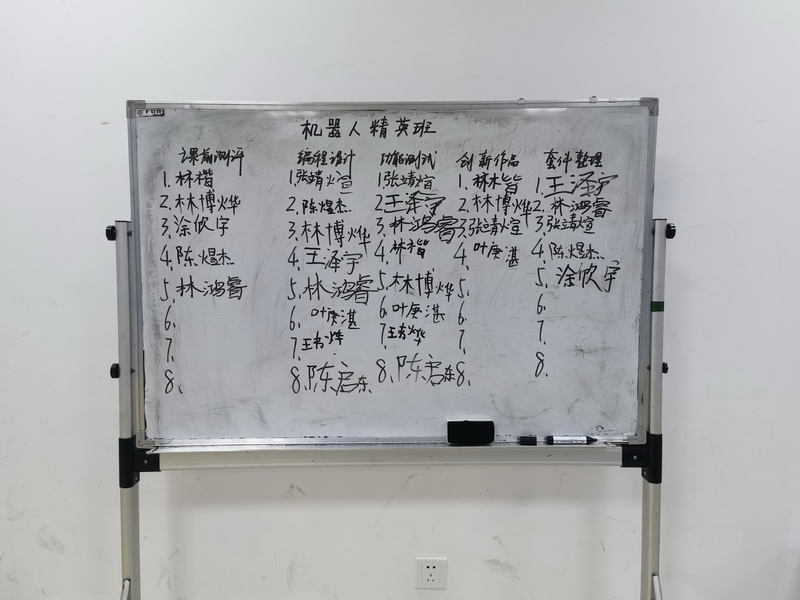 机器人精英班
课前测评
1. 林楷
2. 林博烨
3. 涂欣宇
4. 陈煜杰
5. 林鸿睿
6.
7.
8.
编程设计
1. 张靖煊
2. 陈煜杰
3. 林博烨
4. 王泽宇
5. 林鸿睿
6. 叶庚湛
7. 王书烨
8. 陈启东
功能测试
1. 张靖煊
2. 王泽宇
3. 林鸿睿
4. 林楷
5. 林博烨
6. 叶庚湛
7. 王书烨
8. 陈启东
创新作品
1. 林楷
2. 林博烨
3. 张靖煊
4. 叶庚湛
5.
6.
7.
8.
套件整理
1. 王泽宇
2. 林鸿睿
3. 张靖煊
4. 陈煜杰
5. 涂欣宇
6.
7.
8.